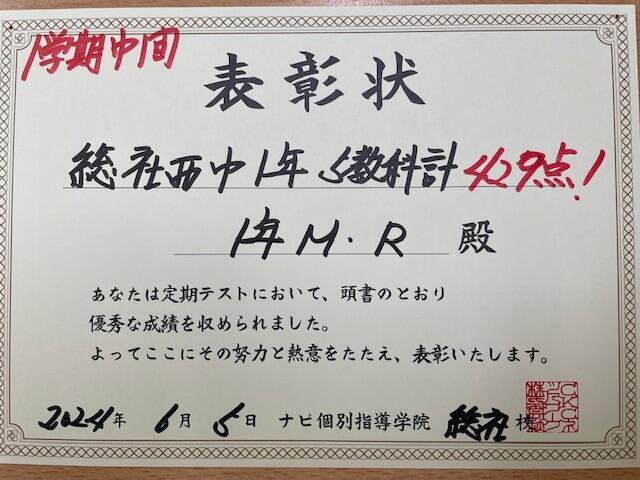 1学期中間
表彰状
総社西中1年 5教科計429点!
1年 M.R 殿
あなたは定期テストにおいて、頭書のとおり
優秀な成績を収められました。
よってここにその努力と熱意をたたえ、表彰いたします。
2024年 6月 5日 ナビ個別指導学院 総社 校